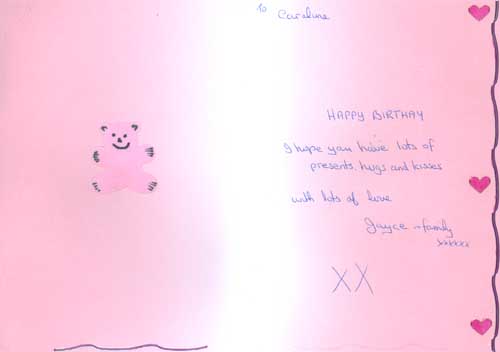 To
Caroline
HAPPY BIRTHAY
I hope you have lots of
presents, hugs and kisses
with lots of love
Joyce + family
xxxxxx
XX